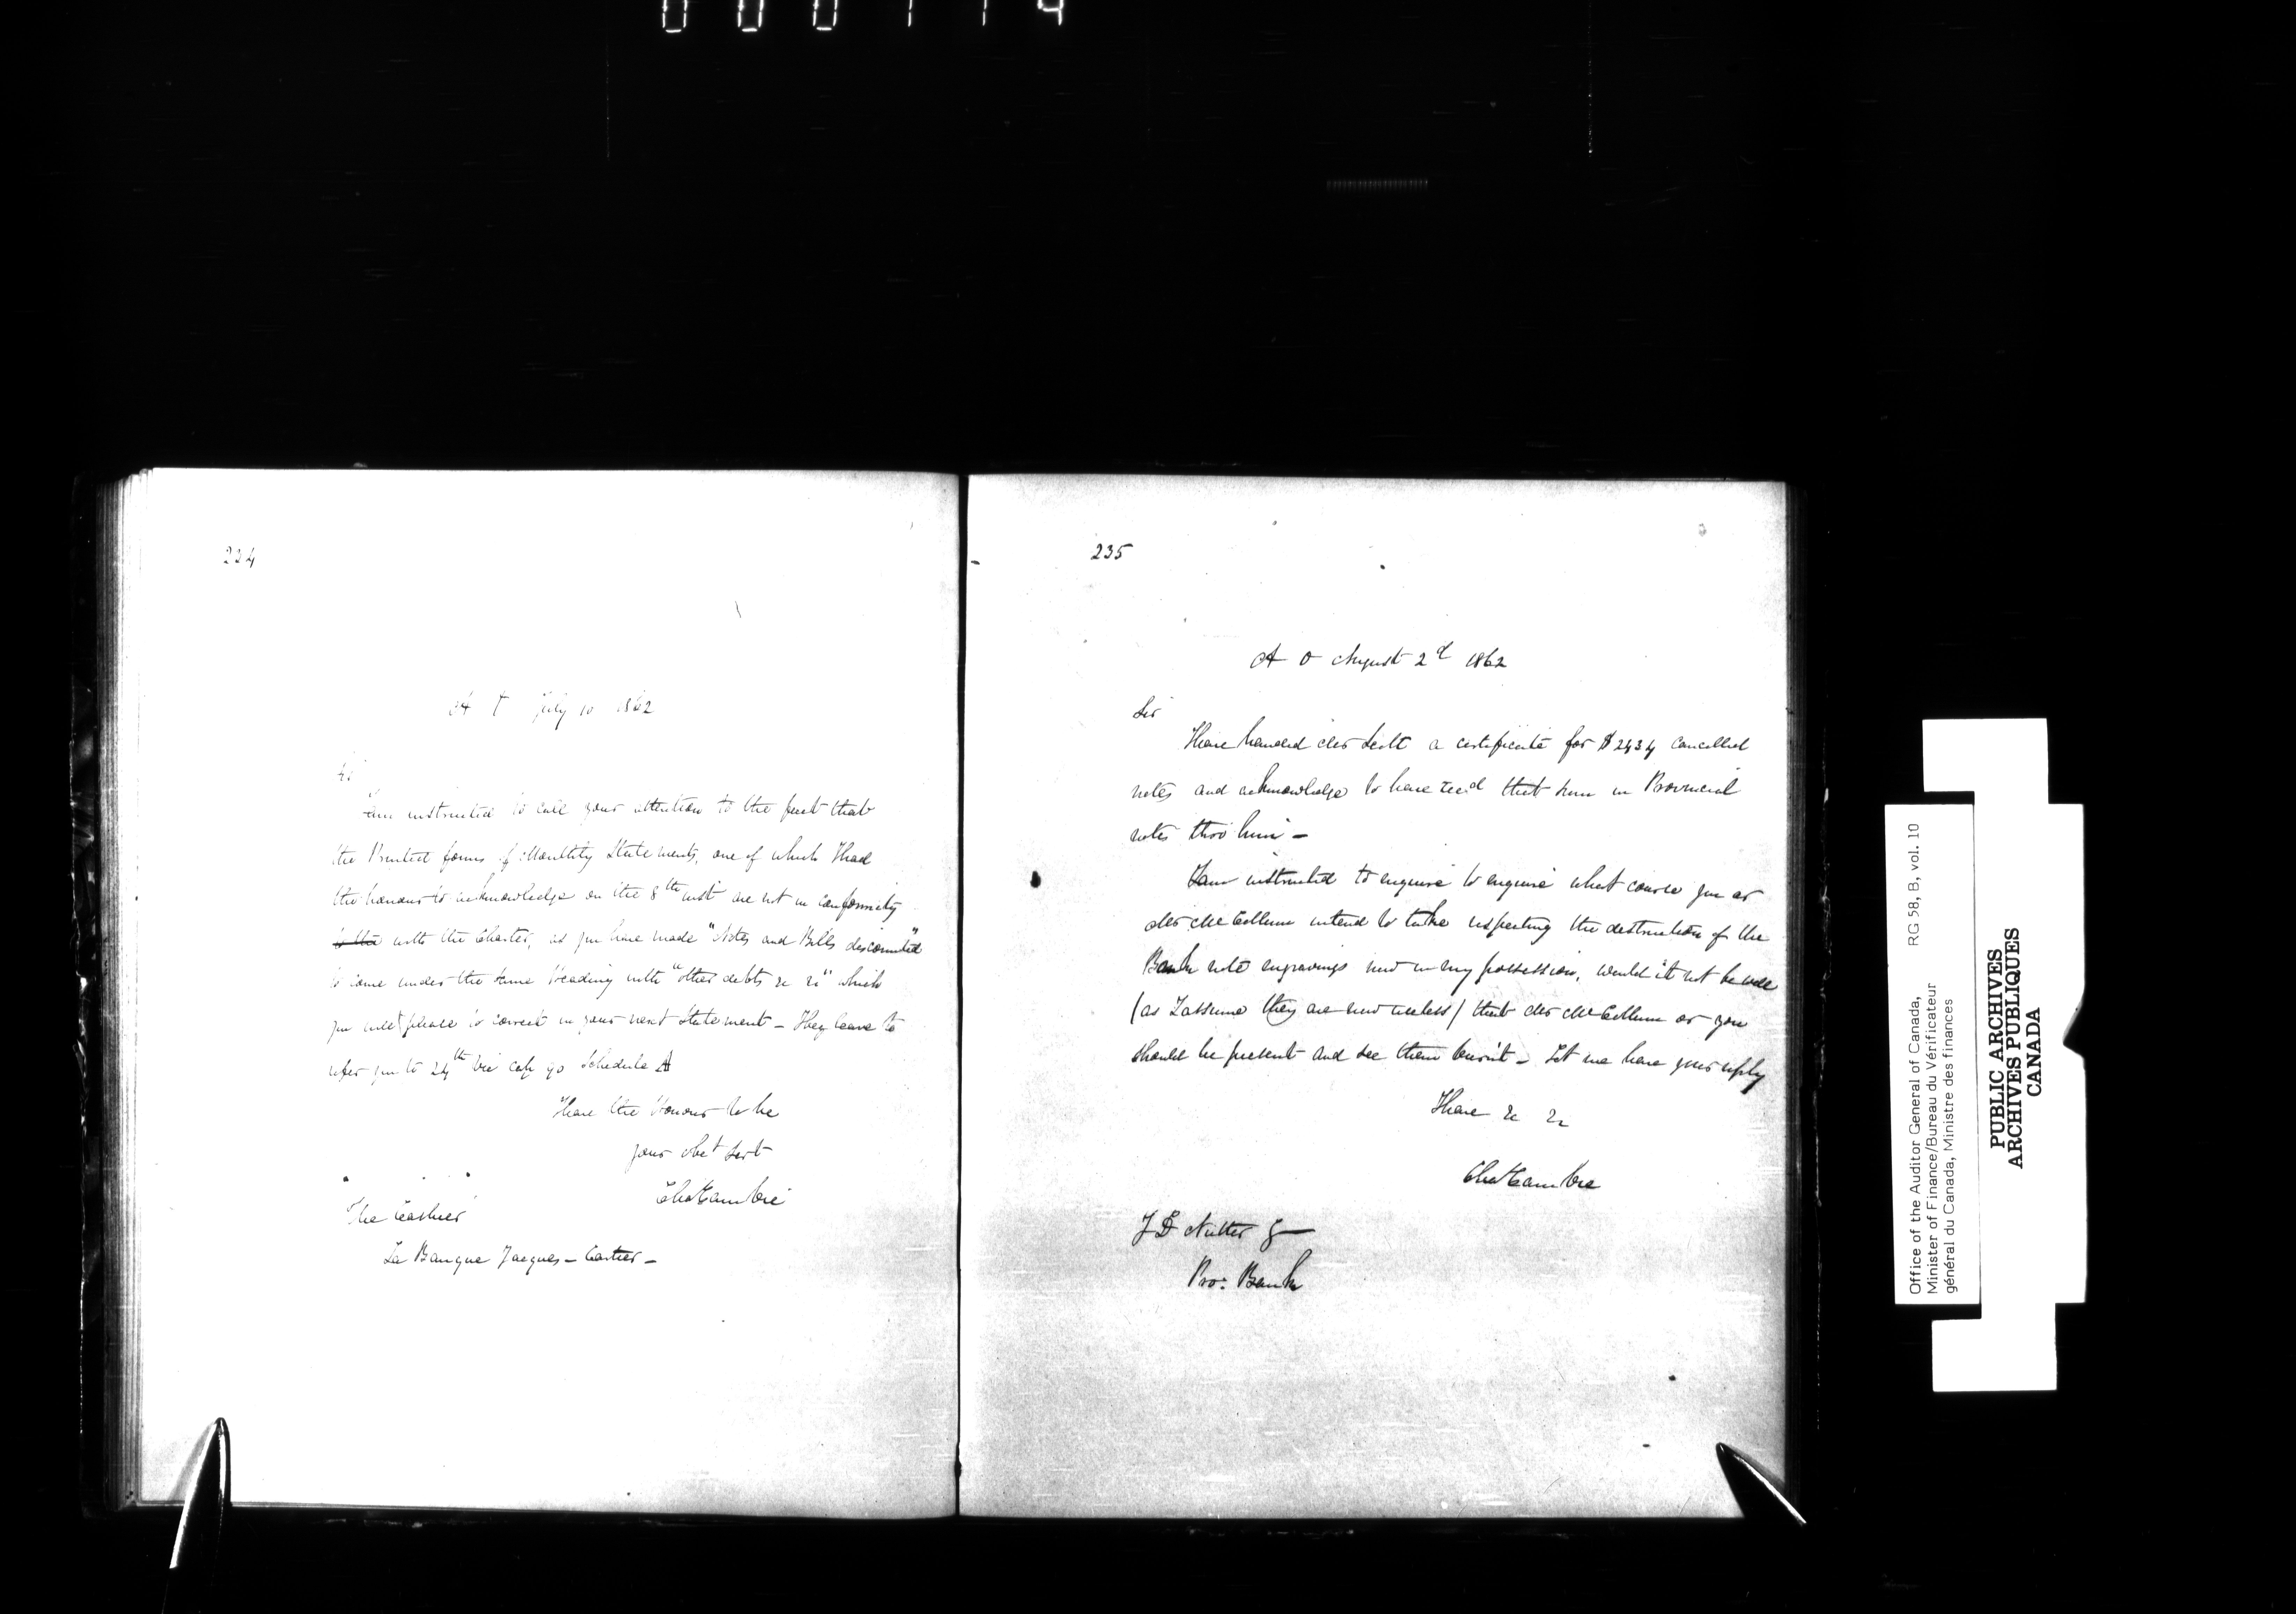 224
July 10 1862
Sir
I am instructed to call your attention to the fact that
the Printed forms of Monthly Statements, one of which I had
the honour to acknowledge on the 8th inst are not in conformity
to the with the Charter, as you have made "Notes and Bills discounted"
to come under the same Heading with "other debts &c &c" which
you will please to correct in your next Statement – I beg leave to
refer you to 24th Vic cap 90 Schedule A
I have the Honour to be
your obet Servt
Chs Cambie
The Cashier
La Banque Jacques – Cartier –
235
A O August 2d 1862
Sir
I have handed Mr Scott a certificate for $2434 cancelled
notes and acknowledge to have recd that sum in Provincial
notes thro' him –
I am instructed to enquire to enquire what course you or
Mr McCollum intend to take respecting the destruction of the
Bank note engravings now in my possession, would it not be well
(as I assume they are now useless) that Mr McCollum or you
should be present and see them burnt – Let me have your reply
I have &c &c
Chs Cambie
J D Nutter
Pro: Bank
Office of the Auditor General of Canada,
Minister of Finance/Bureau du Vérificateur
général du Canada, Ministre des finances
RG 58, B, vol. 10
PUBLIC ARCHIVES
ARCHIVES PUBLIQUES
CANADA